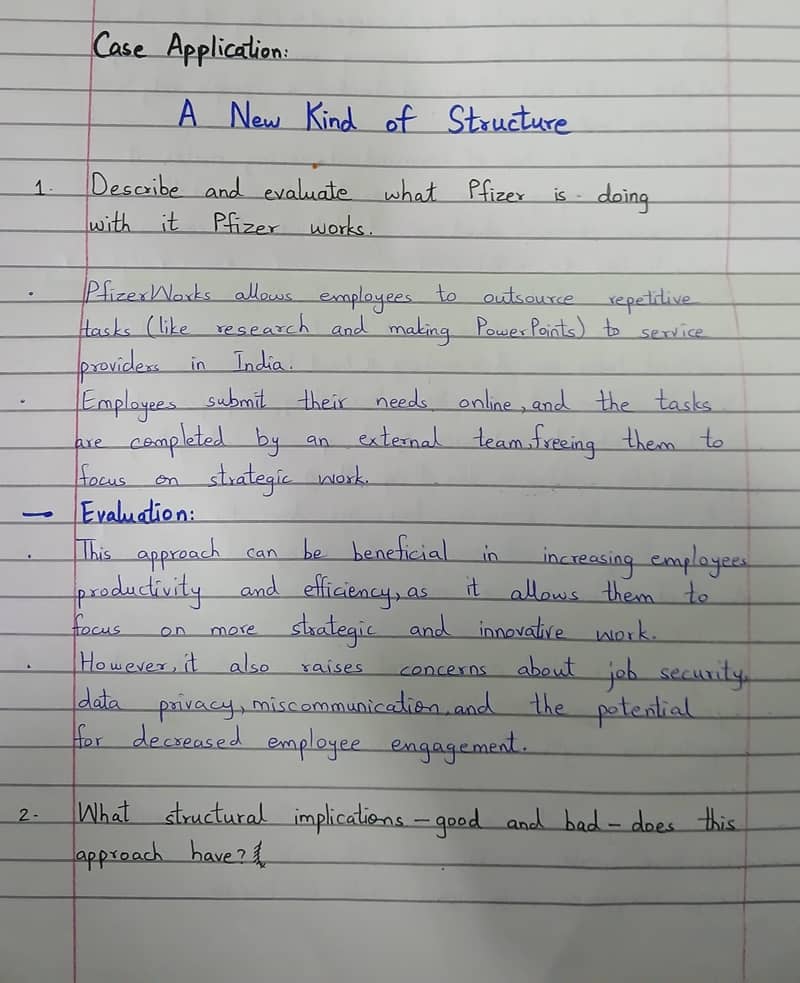 Case Application:
A New Kind of Structure
1. Describe and evaluate what Pfizer is doing
with it Pfizer works.
. PfizerWorks allows employees to outsource repetitive
tasks (like research and making PowerPoints) to service
providers in India.
. Employees submit their needs online, and the tasks
are completed by an external team, freeing them to
focus on strategic work.
— Evaluation:
. This approach can be beneficial in increasing employees
productivity and efficiency, as it allows them to
focus on more strategic and innovative work.
. However, it also raises concerns about job security,
data privacy, miscommunication, and the potential
for decreased employee engagement.
2. What structural implications – good and bad – does this
approach have?